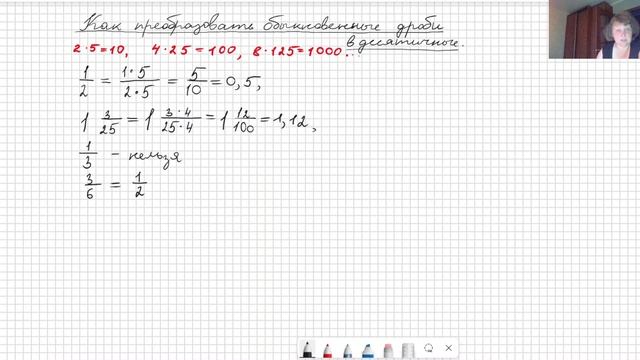 Как преобразовать обыкновенные дроби
в десятичные.
2·5=10, 4·25=100, 8·125=1000...
1/2 = 1·5/2·5 = 5/10 = 0,5,
1 3/25 = 1 3·4/25·4 = 1 12/100 = 1,12,
1/3 – нельзя
3/6 = 1/2